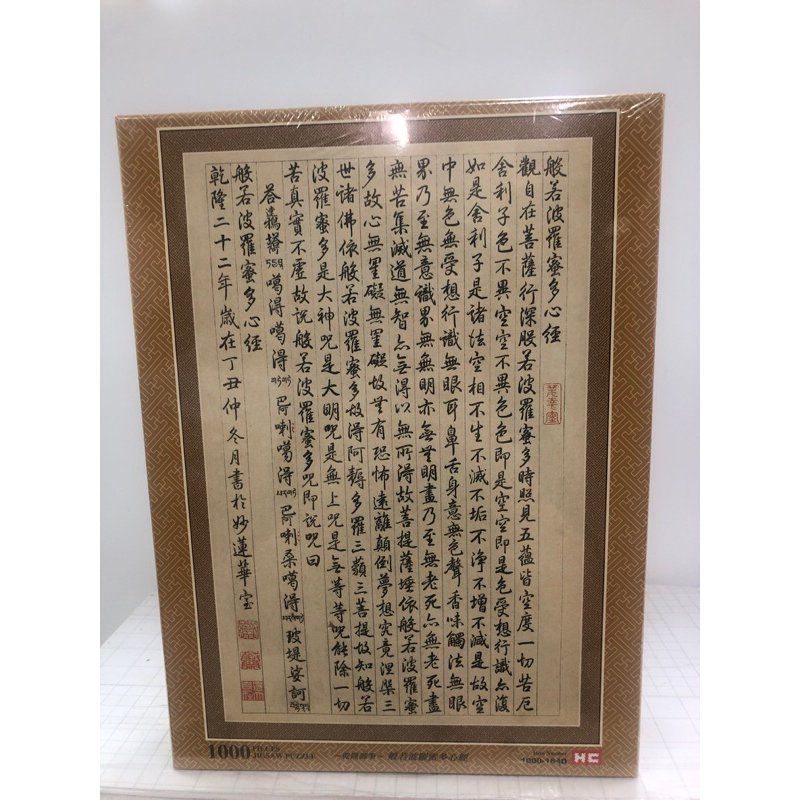 般若波羅蜜多心經
觀自在菩薩行深般若波羅蜜多時照見五蘊皆空度一切苦厄
舍利子色不異空空不異色色即是空空即是色受想行識亦復
如是舍利子是諸法空相不生不滅不垢不淨不增不減是故空
中無色無受想行識無眼耳鼻舌身意無色聲香味觸法無眼
界乃至無意識界無無明亦無無明盡乃至無老死亦無老死盡
無苦集滅道無智亦無得以無所得故菩提薩埵依般若波羅蜜
多故心無罣礙無罣礙故無有恐怖遠離顛倒夢想究竟涅槃三
世諸佛依般若波羅蜜多故得阿耨多羅三藐三菩提故知般若
波羅蜜多是大神咒是大明咒是無上咒是無等等咒能除一切
苦真實不虛故說般若波羅蜜多咒即說咒曰
噶得噶得 巴喇噶得 巴喇桑噶得 玻堤娑訶
般若波羅蜜多心經
乾隆二十二年歲在丁丑仲冬月書於妙蓮華室
1000 PIECES JIGSAW PUZZLE
般若波羅蜜多心經
1000-1640
HC